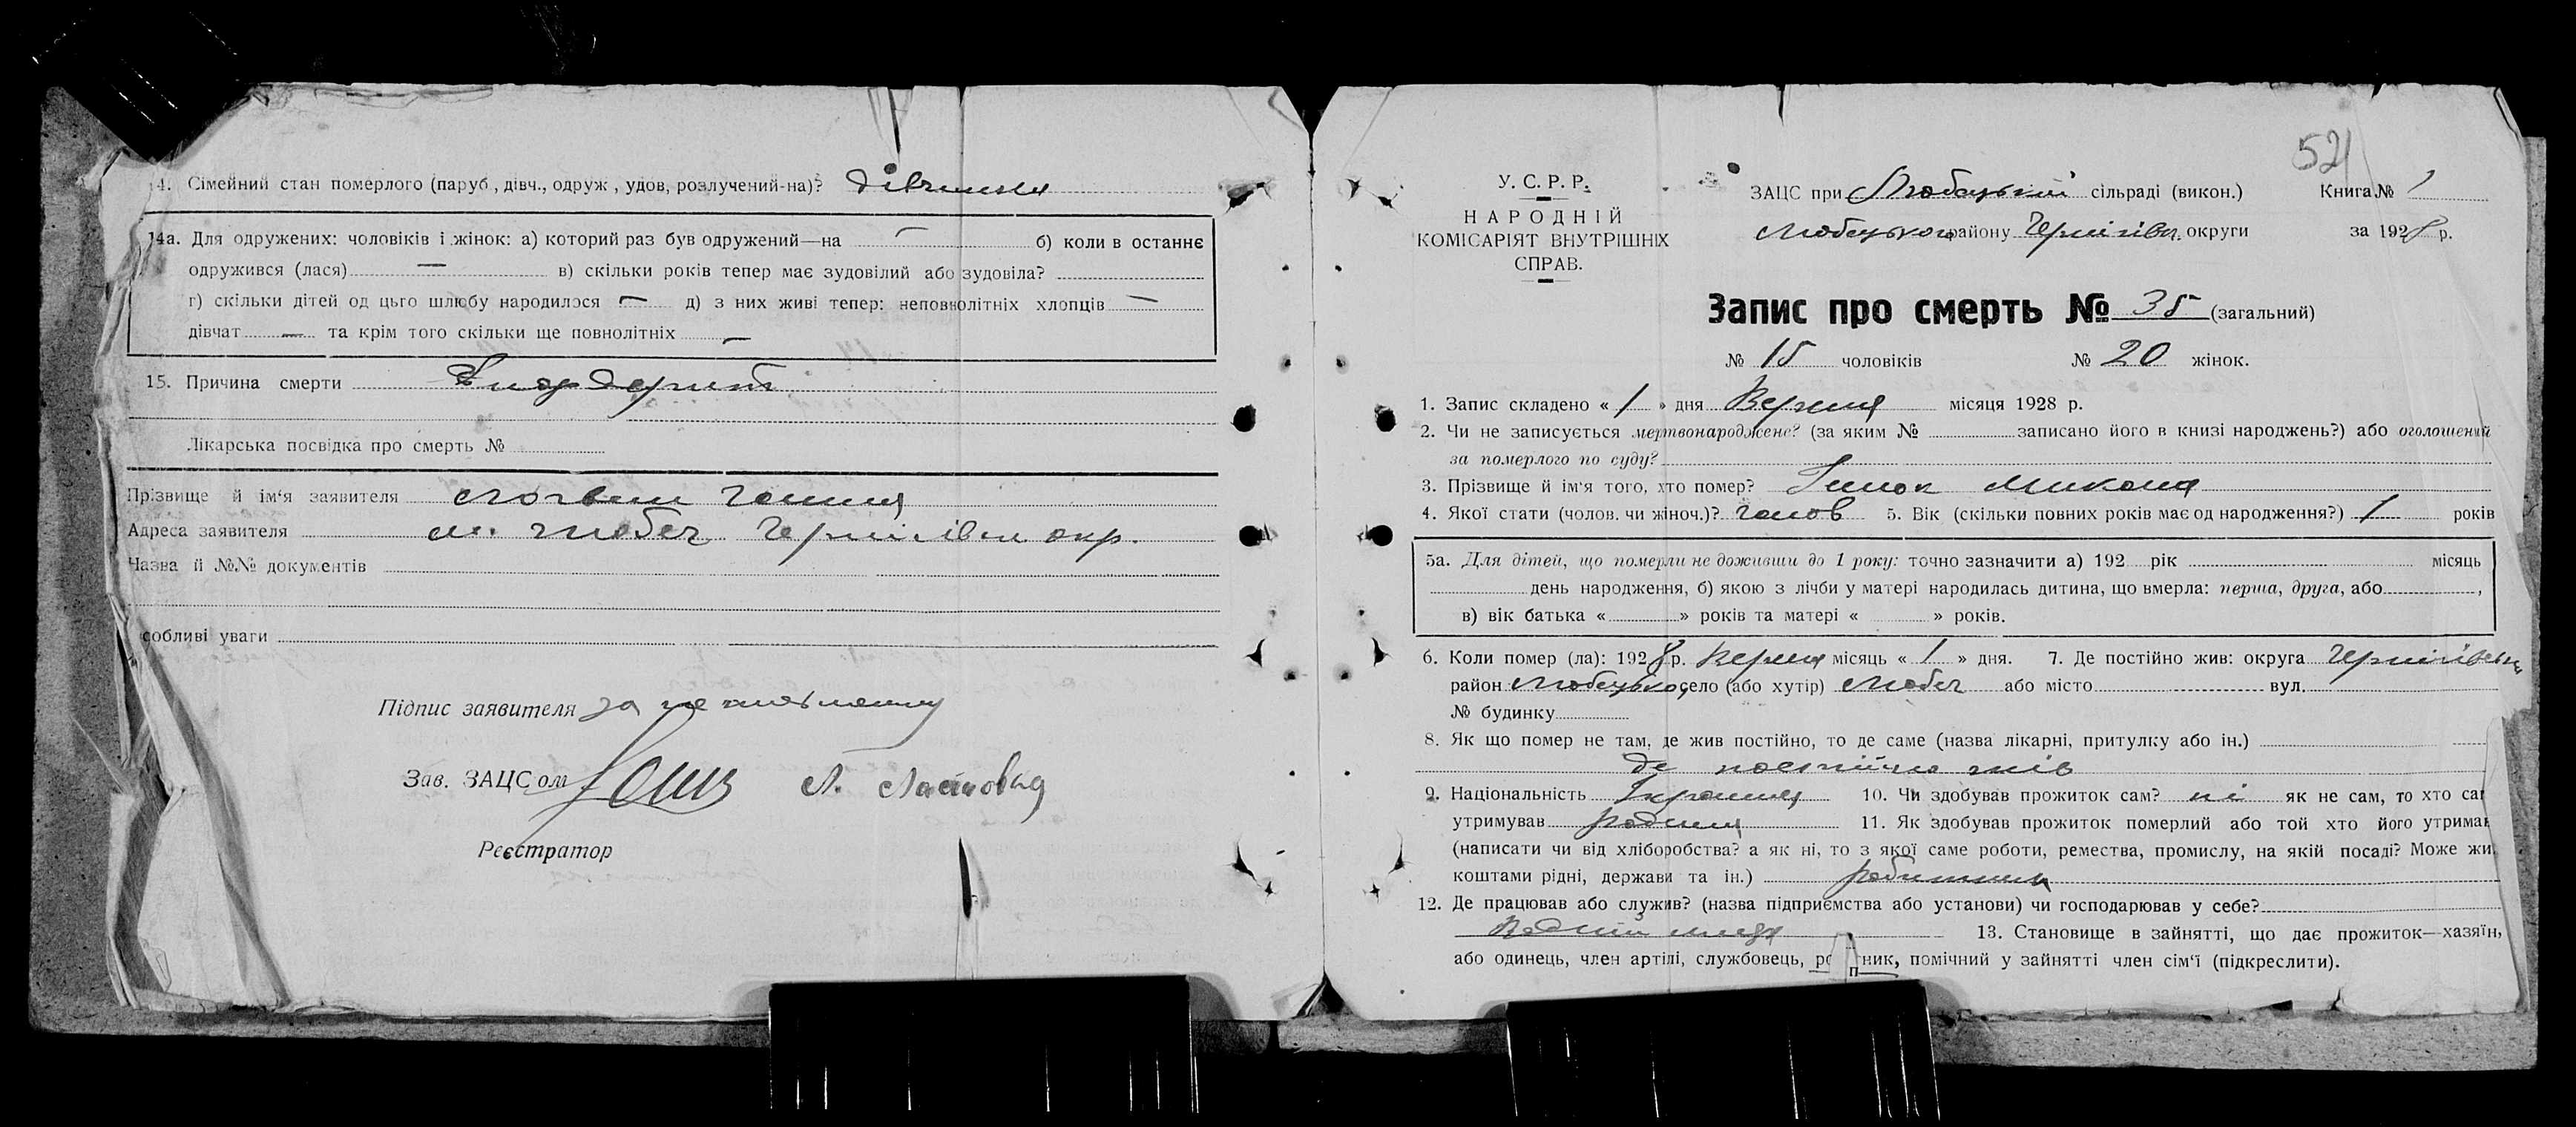 14. Сімейний стан померлого (паруб., дівч., одруж., удов, розлучений-на)? дівчина
14а. Для одружених: чоловіків і жінок: а) которий раз був одружений—на — б) коли в останнє
одружився (лася) — в) скільки років тепер має зудовілий або зудовіла?
г) скільки дітей од цього шлюбу народилося — д) з них живі тепер: неповнолітніх хлопців —
дівчат — та крім того скільки ще повнолітніх —
15. Причина смерти
Лікарська посвідка про смерть №
Прізвище й ім'я заявителя
Адреса заявителя м. Любеч Чернігівськ окр.
Назва й №№ документів
собливі уваги
Підпис заявителя за неписьменну
Зав. ЗАЦСом
Реєстратор
521
У. С. Р. Р.
НАРОДНІЙ
КОМІСАРІЯТ ВНУТРІШНІХ
СПРАВ.
ЗАЦС при Любецькій сільраді (викон.) Книга № 1
Любецького району Чернігівс. округи за 1928 р.
Запис про смерть № 35 (загальний)
№ 15 чоловіків № 20 жінок.
1. Запис складено « 1 » дня Вересня місяця 1928 р.
2. Чи не записується мертвонароджене? (за яким № записано його в книзі народжень?) або оголошений
за померлого по суду?
3. Прізвище й ім'я того, хто помер? Микола
4. Якої стати (чолов. чи жіноч.)? чолов 5. Вік (скільки повних років має од народження?) 1 років
5а. Для дітей, що померли не доживши до 1 року: точно зазначити а) 192 рік місяць
день народження, б) якою з лічби у матері народилась дитина, що вмерла: перша, друга, або ,
в) вік батька « » років та матері « » років.
6. Коли помер (ла): 1928 р. Вересня місяць « 1 » дня. 7. Де постійно жив: округа Чернігівськ
район Любецького село (або хутір) Любеч або місто вул.
№ будинку
8. Як що помер не там, де жив постійно, то де саме (назва лікарні, притулку або ін.)
де постійно жив
9. Національність Українець 10. Чи здобував прожиток сам? ні як не сам, то хто са
утримував родина 11. Як здобував прожиток померлий або той хто його утримав
(написати чи від хліборобства? а як ні, то з якої саме роботи, ремества, промислу, на якій посаді? Може жи
коштами рідні, держави та ін.) робітник
12. Де працював або служив? (назва підприємства або установи) чи господарював у себе?
13. Становище в зайнятті, що дає прожиток—хазяїн,
або одинець, член артілі, службовець, ро ник, помічний у зайнятті член сім'ї (підкреслити).